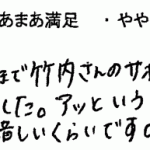 あまあ満足 ・やや
まで竹内さんのサポ
した。アッという
惜しいくらいです。